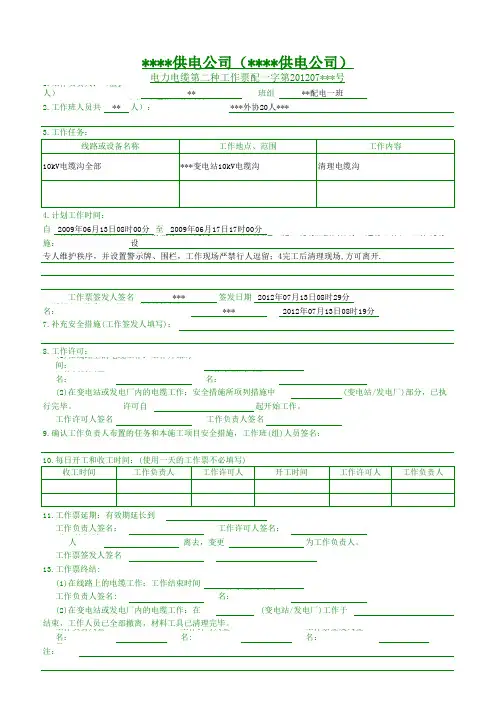 ****供电公司（****供电公司）
电力电缆第二种工作票配一字第201207***号
人） ** 班组 **配电一班
2.工作班人员共 ** 人）： ***外协20人***
3.工作任务：
线路或设备名称 工作地点、范围 工作内容
10kV电缆沟全部 ***变电站10kV电缆沟 清理电缆沟
4.计划工作时间：
自 2009年06月13日08时00分 至 2009年06月17日17时00分
施： 设
专人维护秩序，并设置警示牌、围栏，工作现场严禁行人逗留；4完工后清理现场.方可离开.
工作票签发人签名 *** 签发日期 2012年07月13日08时29分
名： *** 2012年07月13日08时19分
7.补充安全措施(工作签发人填写)：
8.工作许可：
间：
名： 名：
(2)在变电站或发电厂内的电缆工作：安全措施所项列措施中 (变电站/发电厂)部分，已执
行完毕。 许可自 起开始工作。
工作许可人签名 工作负责人签名
9.确认工作负责人布置的任务和本施工项目安全措施，工作班(组)人员签名：
10.每日开工和收工时间：(使用一天的工作票不必填写)
收工时间 工作负责人 工作许可人 开工时间 工作许可人 工作负责人
11.工作票延期：有效期延长到
工作负责人签名： 工作许可人签名：
人 离去，变更 为工作负责人。
工作票签发人签名
13.工作票终结：
(1)在线路上的电缆工作：工作结束时间
工作负责人签名： 名：
(2)在变电站或发电厂内的电缆工作：在 (变电站/发电厂)工作于
结束，工作人员已全部撤离，材料工具已清理完毕。
名： 名： 名：
注：